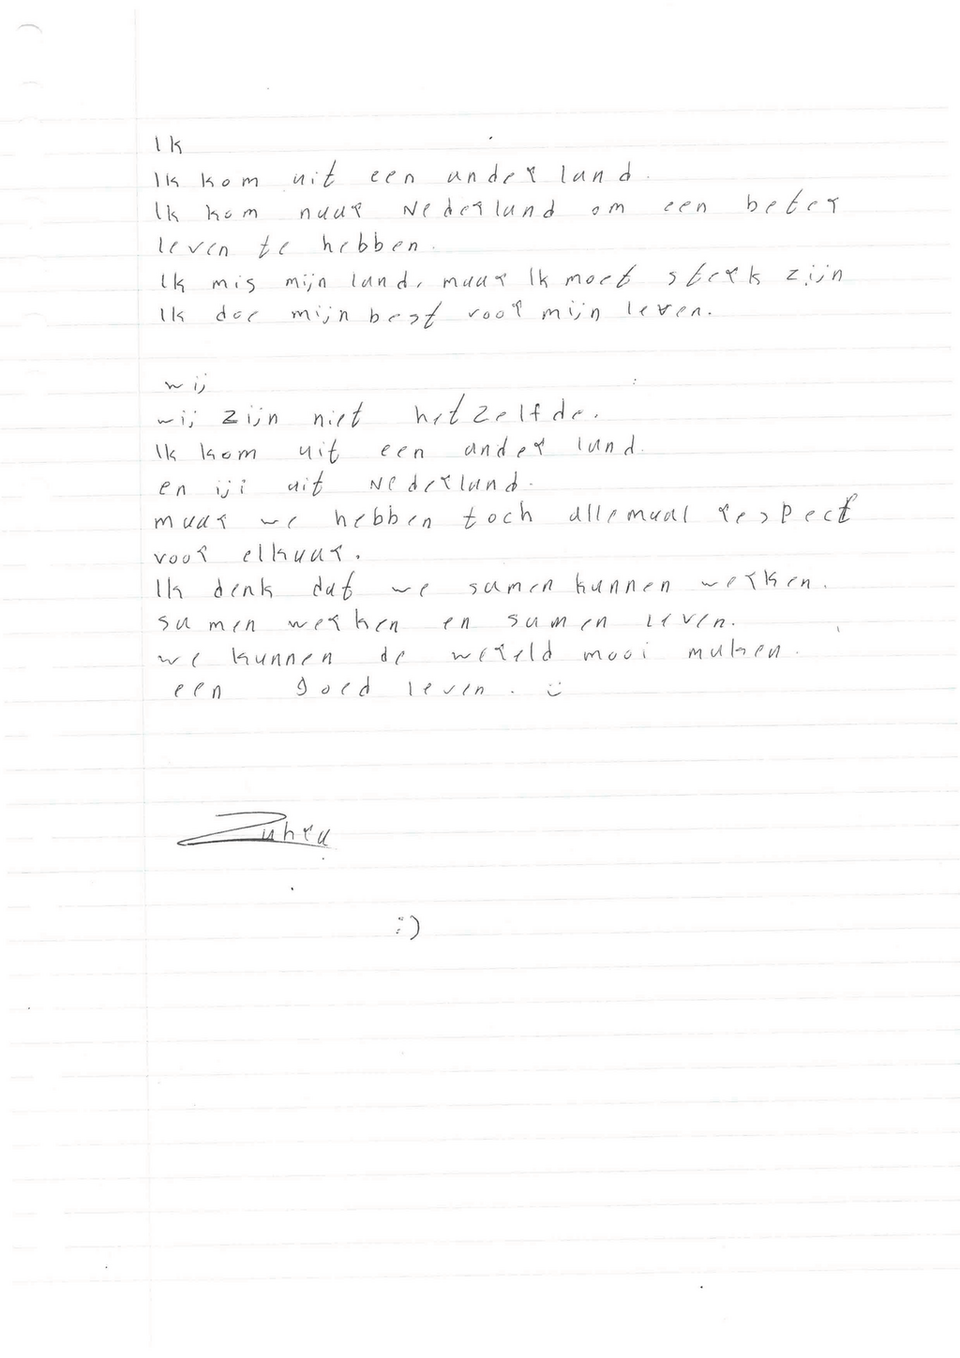 Ik
Ik kom uit een ander land.
Ik kom naar Nederland om een beter
leven te hebben.
Ik mis mijn land, maar Ik moet sterk zijn
Ik doe mijn best voor mijn leven.
wij
wij zijn niet hetzelfde.
Ik kom uit een ander land.
en jij uit Nederland.
maar we hebben toch allemaal respect
voor elkaar.
Ik denk dat we samen kunnen werken.
samen werken en samen leven.
we kunnen de wereld mooi maken.
een goed leven. :)
Zuhra
:)